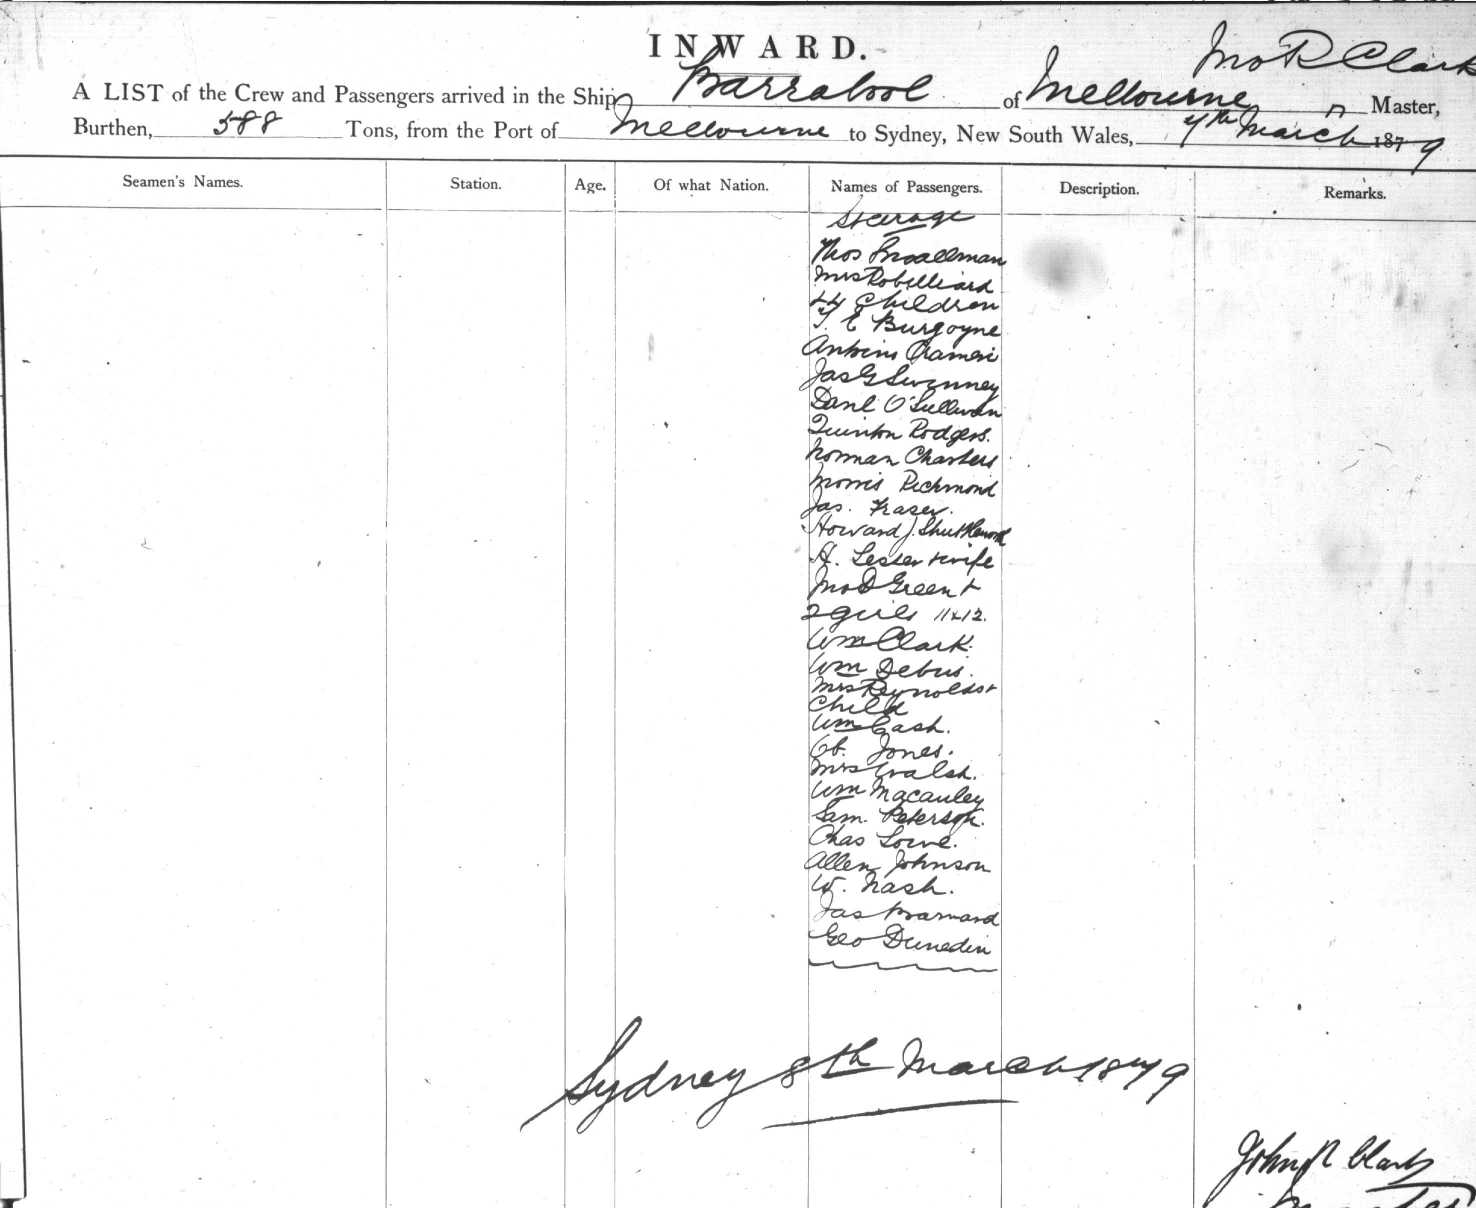 INWARD.
Jno R Clark
A LIST of the Crew and Passengers arrived in the Ship Barrabool of Melbourne Master,
Burthen, 588 Tons, from the Port of Melbourne to Sydney, New South Wales, 7th March 1879
Seamen's Names. Station. Age. Of what Nation. Names of Passengers. Description. Remarks.
Steerage
Thos
Mrs Robilliard
Children
E Burgoyne
Jas G Swinney
Danl O'Sullivan
Quinton Rodgers.
Norman Charters
Morris Richmond
Jas. Fraser.
Howard J. Shuttleworth
H. Lester & wife
Jno D Green &
2 girls 11 & 12.
Wm Clark.
Wm Debus.
Mrs Reynolds &
Child
Wm Cash.
Jones.
Mrs Walsh.
Wm Macauley
Sam. Peterson.
Chas Lowe.
Allen Johnson
W. Nash.
Jas Barnard
Geo Dunedin
Sydney 8th March 1879
John R Clark
Master